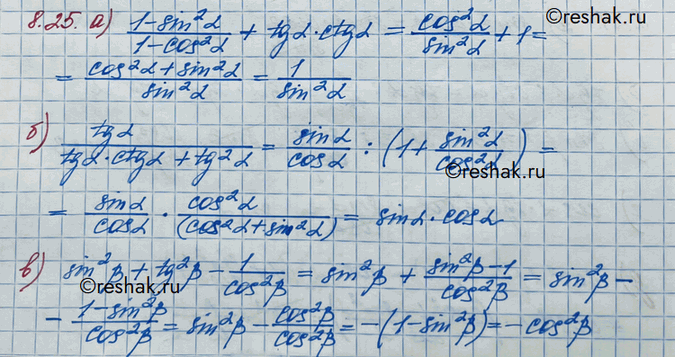 8.25. а) (1-sin²α)/(1-cos²α) + tgα·ctgα = cos²α/sin²α + 1 =
= (cos²α+sin²α)/sin²α = 1/sin²α
©reshak.ru
б) tgα/(tgα·ctgα+tg²α) = sinα/cosα : (1+sin²α/cos²α) =
©reshak.ru
= sinα/cosα · cos²α/(cos²α+sin²α) = sinα·cosα
в) sin²β + tg²β - 1/cos²β = sin²β + (sin²β-1)/cos²β = sin²β -
- (1-sin²β)/cos²β = sin²β - cos²β/cos²β = -(1-sin²β) = -cos²β
©reshak.ru